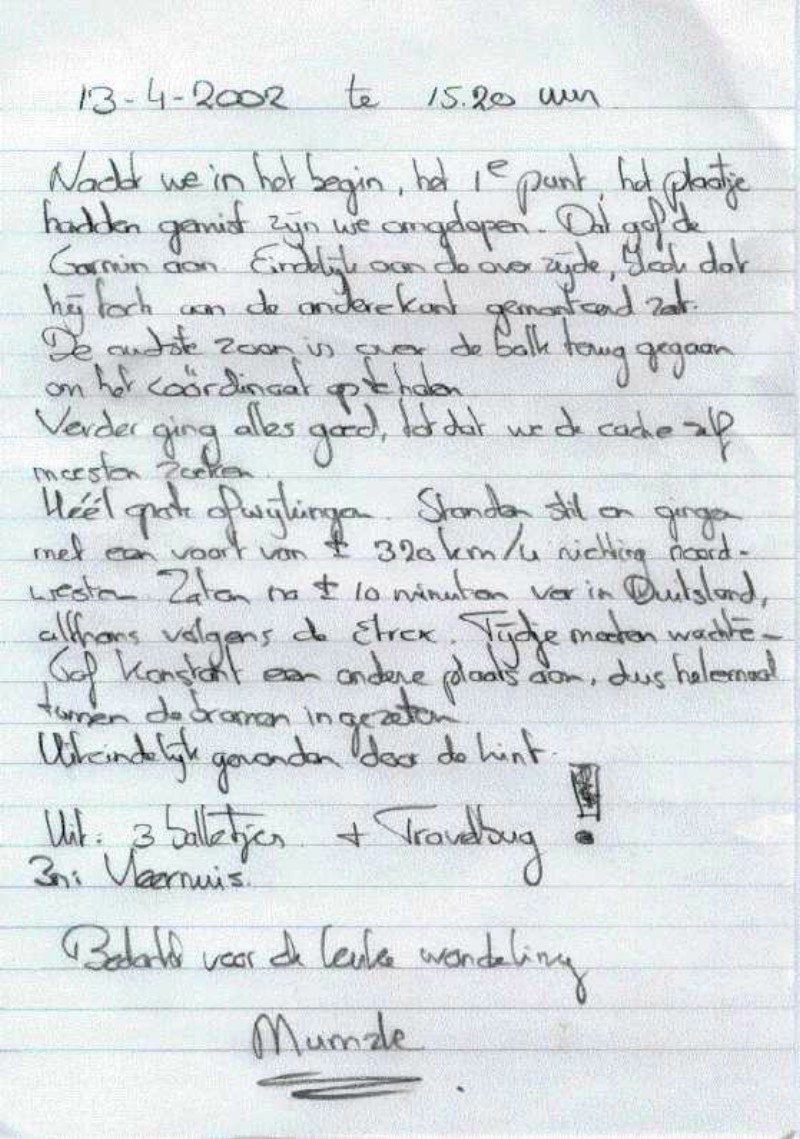 13-4-2002 te 15.20 uur
Nadat we in het begin, het 1e punt, het plaatje
hadden gemist zijn we omgelopen. Dat gaf de
Garmin aan. Eindelijk aan de over zijde, bleek dat
hij toch aan de andere kant gemonteerd zat.
De oudste zoon is over de balk terug gegaan
om het coördinaat op te halen
Verder ging alles goed, tot dat we de cache zelf
moesten zoeken.
Héél grote afwijkingen. Stonden stil en gingen
met een vaart van ± 320 km/u richting noord-
westen. Zaten na ± 10 minuten ver in Duitsland,
althans volgens de Etrex. Tijdje moeten wachte-
Gaf konstant een andere plaats aan, dus helemaal
tussen de bramen in gezeten
Uiteindelijk gevonden door de hint.
Uit: 3 balletjes + Travelbug !
In: Vleermuis.
Bedankt voor de leuke wandeling